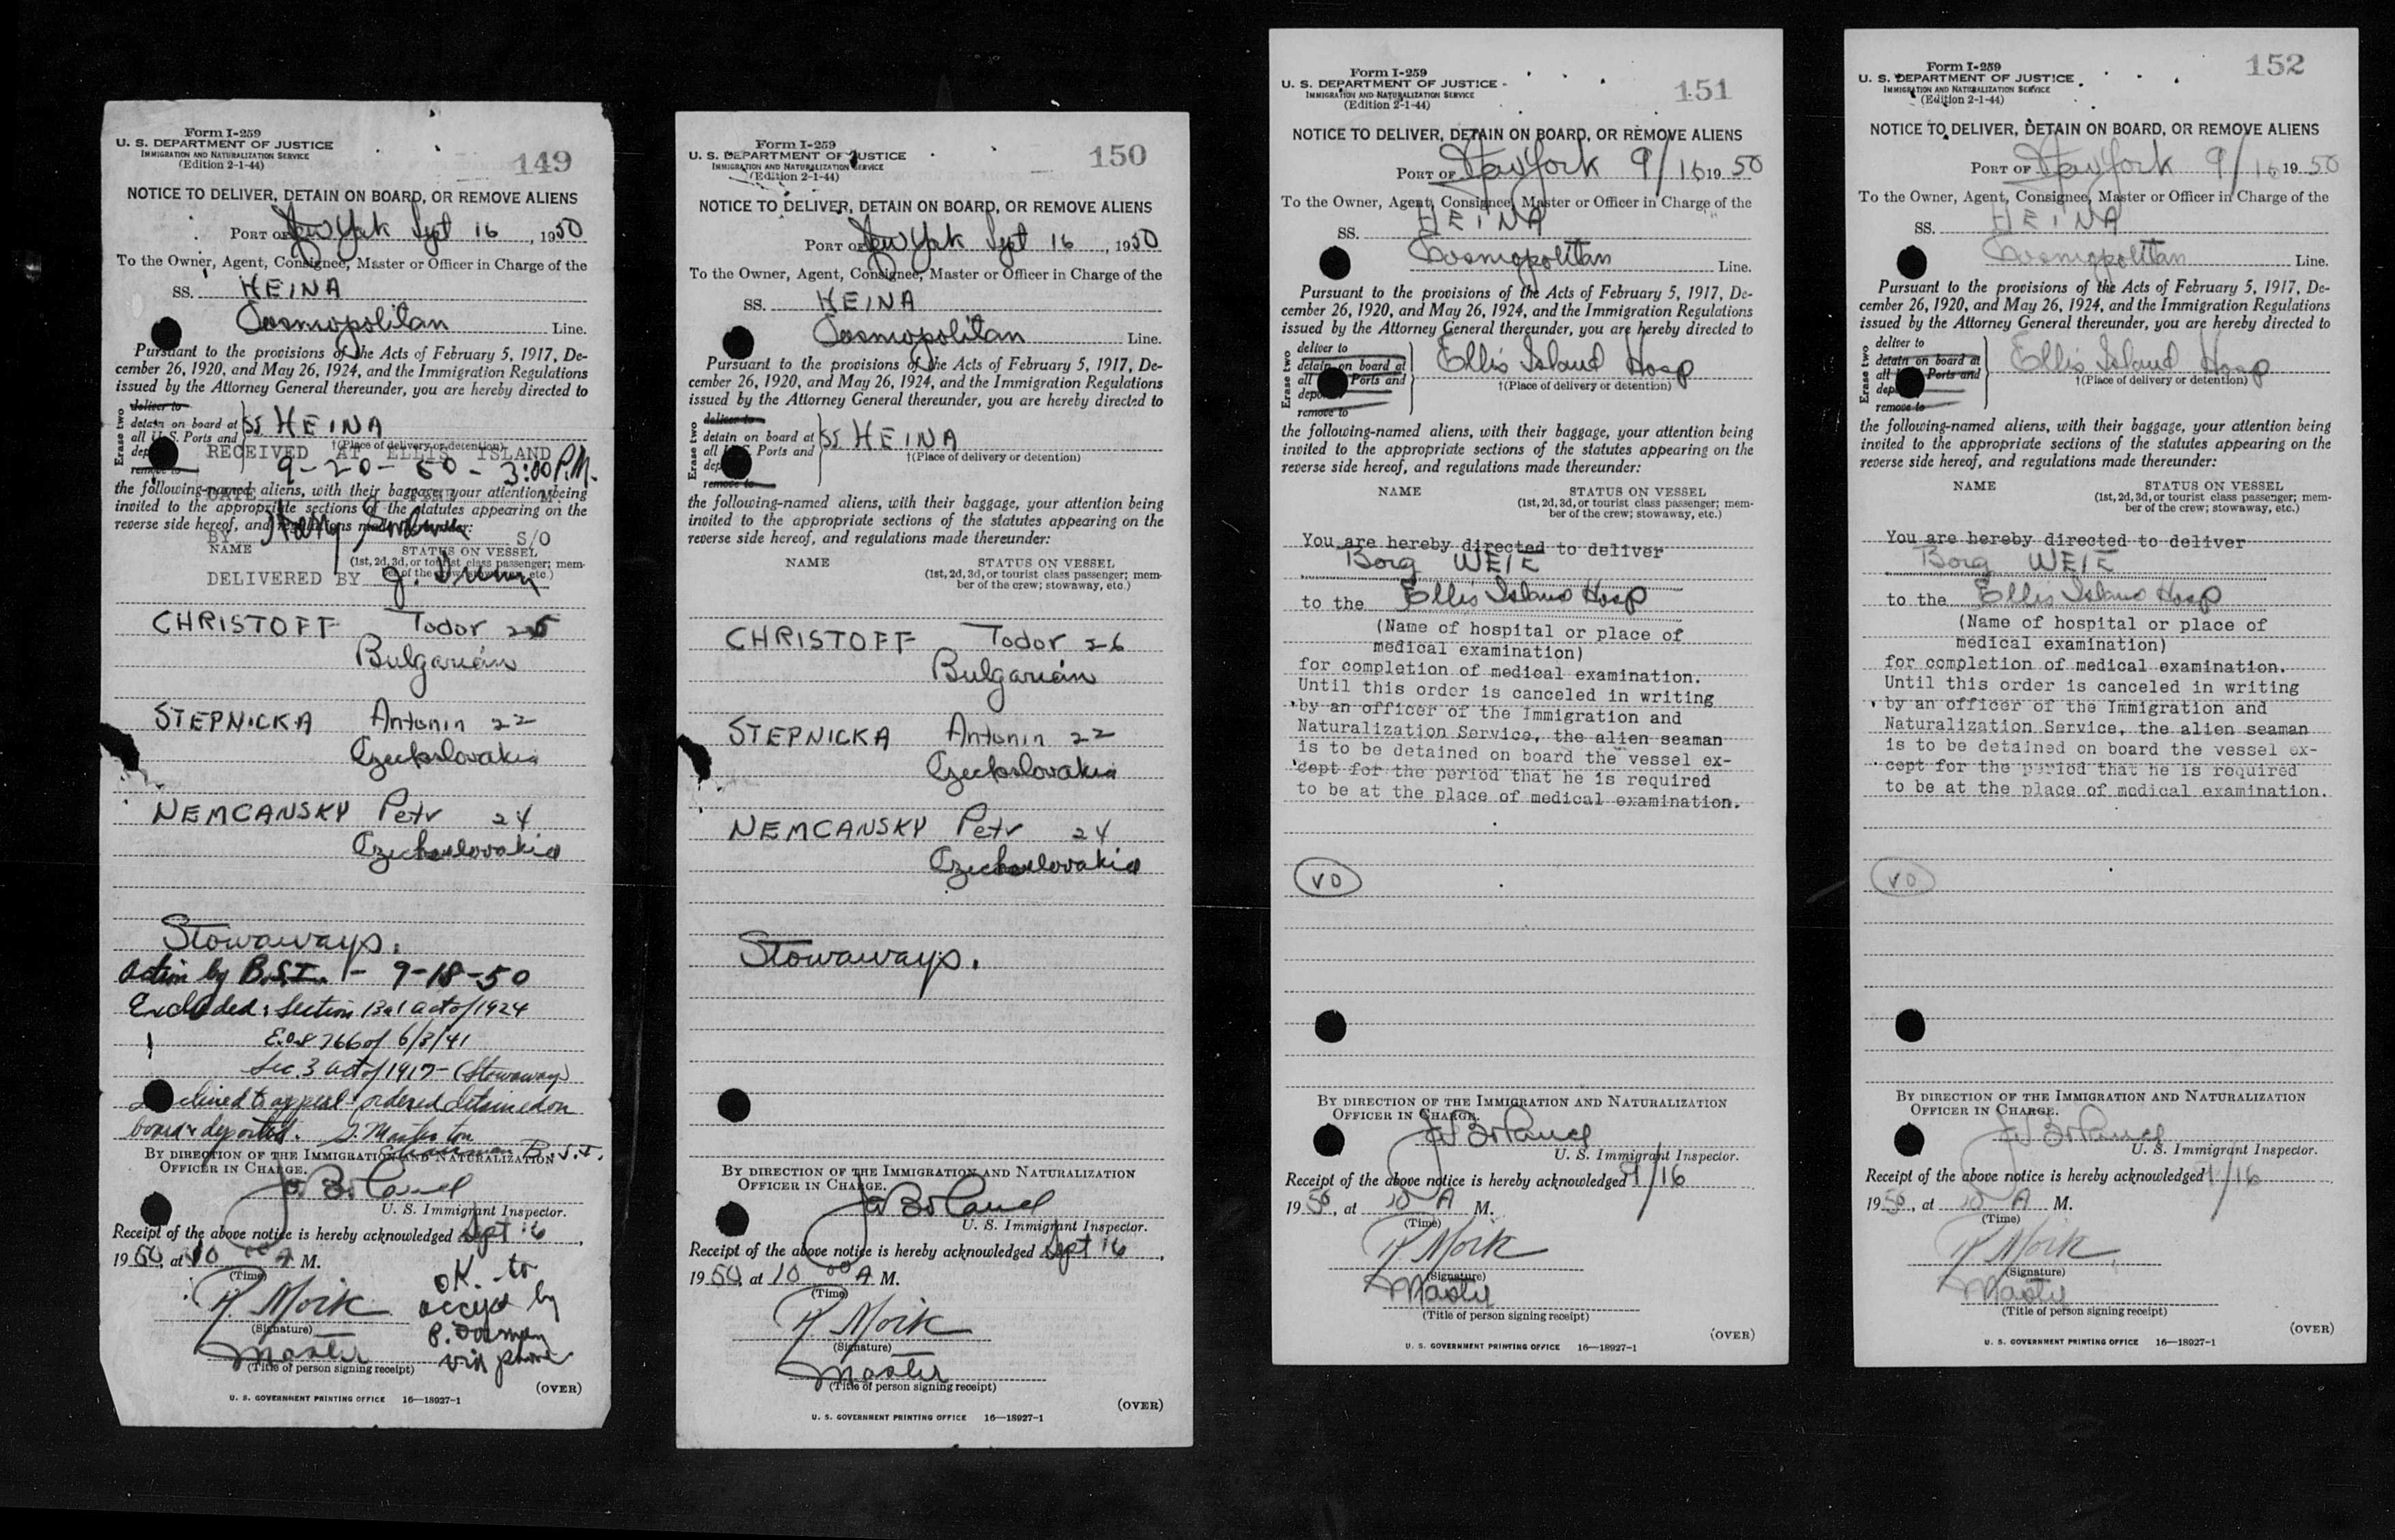 Form I-259
U. S. DEPARTMENT OF JUSTICE
IMMIGRATION AND NATURALIZATION SERVICE
(Edition 2-1-44)
149
NOTICE TO DELIVER, DETAIN ON BOARD, OR REMOVE ALIENS
PORT OF New York Sept 16, 1950
To the Owner, Agent, Consignee, Master or Officer in Charge of the
SS. HEINA
Cosmopolitan Line.
Pursuant to the provisions of the Acts of February 5, 1917, De-
cember 26, 1920, and May 26, 1924, and the Immigration Regulations
issued by the Attorney General thereunder, you are hereby directed to
Erase two
deliver to
detain on board at
all U. S. Ports and
remove to
SS HEINA
†(Place of delivery or detention)
RECEIVED AT ELLIS ISLAND
9-20-50- 3:00 P.M.
DATE
the following-named aliens, with their baggage, your attention being
invited to the appropriate sections of the statutes appearing on the
reverse side hereof, and regulations made thereunder:
BY S/O
NAME STATUS ON VESSEL
(1st, 2d, 3d, or tourist class passenger; mem-
ber of the crew; stowaway, etc.)
DELIVERED BY
CHRISTOFF Todor
Bulgarian
STEPNICKA Antonin 22
Czechoslovakia
NEMCANSKY Petr 24
Czechoslovakia
Stowaways.
Action by B.S.I. - 9-18-50
Excluded: Section 13a1 act of 1924
E.O. 8766 of 6/3/41
Sec. 3 act of 1917- (Stowaway)
to appeal - ordered detained on
board & deported.
Chairman B.S.I.
BY DIRECTION OF THE IMMIGRATION AND NATURALIZATION
OFFICER IN CHARGE.
U. S. Immigrant Inspector.
Receipt of the above notice is hereby acknowledged Sept 16,
1950, at 10 00 A M.
(Time)
OK. to
accept by
via phone
(Signature)
Master
(Title of person signing receipt)
(OVER)
U. S. GOVERNMENT PRINTING OFFICE 16—18927-1
Form I-259
U. S. DEPARTMENT OF JUSTICE
IMMIGRATION AND NATURALIZATION SERVICE
(Edition 2-1-44)
150
NOTICE TO DELIVER, DETAIN ON BOARD, OR REMOVE ALIENS
PORT OF New York Sept 16, 1950
To the Owner, Agent, Consignee, Master or Officer in Charge of the
SS. HEINA
Cosmopolitan Line.
Pursuant to the provisions of the Acts of February 5, 1917, De-
cember 26, 1920, and May 26, 1924, and the Immigration Regulations
issued by the Attorney General thereunder, you are hereby directed to
Erase two
deliver to
detain on board at
all Ports and
remove to
SS HEINA
†(Place of delivery or detention)
the following-named aliens, with their baggage, your attention being
invited to the appropriate sections of the statutes appearing on the
reverse side hereof, and regulations made thereunder:
NAME STATUS ON VESSEL
(1st, 2d, 3d, or tourist class passenger; mem-
ber of the crew; stowaway, etc.)
CHRISTOFF Todor 26
Bulgarian
STEPNICKA Antonin 22
Czechoslovakia
NEMCANSKY Petr 24
Czechoslovakia
Stowaways.
BY DIRECTION OF THE IMMIGRATION AND NATURALIZATION
OFFICER IN CHARGE.
U. S. Immigrant Inspector.
Receipt of the above notice is hereby acknowledged Sept 16,
1950, at 10 00 A M.
(Time)
(Signature)
Master
(Title of person signing receipt)
(OVER)
U. S. GOVERNMENT PRINTING OFFICE 16—18927-1
Form I-259
U. S. DEPARTMENT OF JUSTICE
IMMIGRATION AND NATURALIZATION SERVICE
(Edition 2-1-44)
151
NOTICE TO DELIVER, DETAIN ON BOARD, OR REMOVE ALIENS
PORT OF New York 9/16 1950
To the Owner, Agent, Consignee, Master or Officer in Charge of the
SS. HEINA
Cosmopolitan Line.
Pursuant to the provisions of the Acts of February 5, 1917, De-
cember 26, 1920, and May 26, 1924, and the Immigration Regulations
issued by the Attorney General thereunder, you are hereby directed to
Erase two
deliver to
detain on board at
all Ports and
remove to
Ellis Island Hosp
†(Place of delivery or detention)
the following-named aliens, with their baggage, your attention being
invited to the appropriate sections of the statutes appearing on the
reverse side hereof, and regulations made thereunder:
NAME STATUS ON VESSEL
(1st, 2d, 3d, or tourist class passenger; mem-
ber of the crew; stowaway, etc.)
You are hereby directed to deliver
Borg WEIE
to the Ellis Island Hosp
(Name of hospital or place of
medical examination)
for completion of medical examination.
Until this order is canceled in writing
by an officer of the Immigration and
Naturalization Service, the alien seaman
is to be detained on board the vessel ex-
cept for the period that he is required
to be at the place of medical examination.
VD
BY DIRECTION OF THE IMMIGRATION AND NATURALIZATION
OFFICER IN CHARGE.
U. S. Immigrant Inspector.
Receipt of the above notice is hereby acknowledged 9/16
1950, at 10 A M.
(Time)
(Signature)
Master
(Title of person signing receipt)
(OVER)
U. S. GOVERNMENT PRINTING OFFICE 16—18927-1
Form I-259
U. S. DEPARTMENT OF JUSTICE
IMMIGRATION AND NATURALIZATION SERVICE
(Edition 2-1-44)
152
NOTICE TO DELIVER, DETAIN ON BOARD, OR REMOVE ALIENS
PORT OF New York 9/16 1950
To the Owner, Agent, Consignee, Master or Officer in Charge of the
SS. HEINA
Cosmopolitan Line.
Pursuant to the provisions of the Acts of February 5, 1917, De-
cember 26, 1920, and May 26, 1924, and the Immigration Regulations
issued by the Attorney General thereunder, you are hereby directed to
Erase two
deliver to
detain on board at
all Ports and
remove to
Ellis Island Hosp
†(Place of delivery or detention)
the following-named aliens, with their baggage, your attention being
invited to the appropriate sections of the statutes appearing on the
reverse side hereof, and regulations made thereunder:
NAME STATUS ON VESSEL
(1st, 2d, 3d, or tourist class passenger; mem-
ber of the crew; stowaway, etc.)
You are hereby directed to deliver
Borg WEIE
to the Ellis Island Hosp
(Name of hospital or place of
medical examination)
for completion of medical examination.
Until this order is canceled in writing
by an officer of the Immigration and
Naturalization Service, the alien seaman
is to be detained on board the vessel ex-
cept for the period that he is required
to be at the place of medical examination.
VD
BY DIRECTION OF THE IMMIGRATION AND NATURALIZATION
OFFICER IN CHARGE.
U. S. Immigrant Inspector.
Receipt of the above notice is hereby acknowledged 9/16
1950, at 10 A M.
(Time)
(Signature)
Master
(Title of person signing receipt)
(OVER)
U. S. GOVERNMENT PRINTING OFFICE 16—18927-1